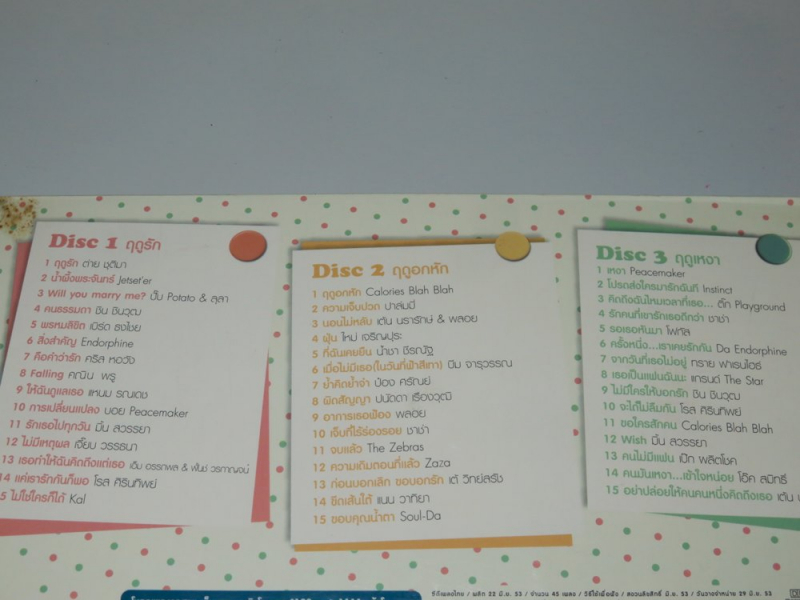 Disc 1 ฤดูรัก
1 ฤดูรัก ต่าย ชุติมา
2 น้ำผึ้งพระจันทร์ Jetset'er
3 Will you marry me? ปั๊บ Potato & ลุลา
4 คนธรรมดา ชิน ชินวุฒ
5 พรหมลิขิต เบิร์ด ธงไชย
6 สิ่งสำคัญ Endorphine
7 คือคำว่ารัก คริส หอวัง
8 Falling คณิน พรู
9 ให้ฉันดูแลเธอ แหนม รณเดช
10 การเปลี่ยนแปลง บอย Peacemaker
11 รักเธอไปทุกวัน มิ้น สวรรยา
12 ไม่มีเหตุผล เจี๊ยบ วรรธนา
13 เธอทำให้ฉันคิดถึงแต่เธอ เอ็ม อรรถพล & พั้นช์ วรกาญจน์
14 แค่เรารักกันก็พอ โรส ศิรินทิพย์
15 ไม่ใช่ใครก็ได้ Kal
Disc 2 ฤดูอกหัก
1 ฤดูอกหัก Calories Blah Blah
2 ความเจ็บปวด ปาล์มมี่
3 นอนไม่หลับ เต้น นรารักษ์ & พลอย
4 ฝุ่น ใหม่ เจริญปุระ
5 ที่ฉันเคยยืน น้ำชา ชีรณัฐ
6 เมื่อไม่มีเธอ(ในวันที่ฟ้าสีเทา) บีม จารุวรรณ
7 ย้ำคิดย้ำจำ ป๊อง ศรัณย์
8 ผิดสัญญา ปนัดดา เรืองวุฒิ
9 อาการเธอเฟือง พลอย
10 เจ็บที่ไร้ร่องรอย ซาช่า
11 จบแล้ว The Zebras
12 ความเดิมตอนที่แล้ว Zaza
13 ก่อนบอกเลิก ขอบอกรัก เต้ วิทย์สรัช
14 ขีดเส้นใต้ แนน วาทิยา
15 ขอบคุณน้ำตา Soul-Da
Disc 3 ฤดูเหงา
1 เหงา Peacemaker
2 โปรดส่งใครมารักฉันที Instinct
3 คิดถึงฉันไหมเวลาที่เธอ... ติ๊ก Playground
4 รักคนที่เขารักเธอดีกว่า ซาช่า
5 รอเธอหันมา โฟกัส
6 ครั้งหนึ่ง...เราเคยรักกัน Da Endorphine
7 จากวันที่เธอไม่อยู่ ทราย ฟาเรนไฮธ์
8 เธอเป็นแฟนฉันนะ แกรนด์ The Star
9 ไม่มีใครให้บอกรัก ชิน ชินวุฒ
10 จะได้ไม่ลืมกัน โรส ศิรินทิพย์
11 ขอใครสักคน Calories Blah Blah
12 Wish มิ้น สวรรยา
13 คนไม่มีแฟน เป๊ก ผลิตโชค
14 คนมันเหงา...เข้าใจหน่อย โอ๊ค สมิทธิ์
15 อย่าปล่อยให้คนคนหนึ่งคิดถึงเธอ เต้น
ซีดีเพลงไทย / ผลิต 22 มิ.ย. 53 / จำนวน 45 เพลง / วิธีใช้เพื่อฟัง / สงวนลิขสิทธิ์ มิ.ย. 53 / วันวางจำหน่าย 29 มิ.ย. 53